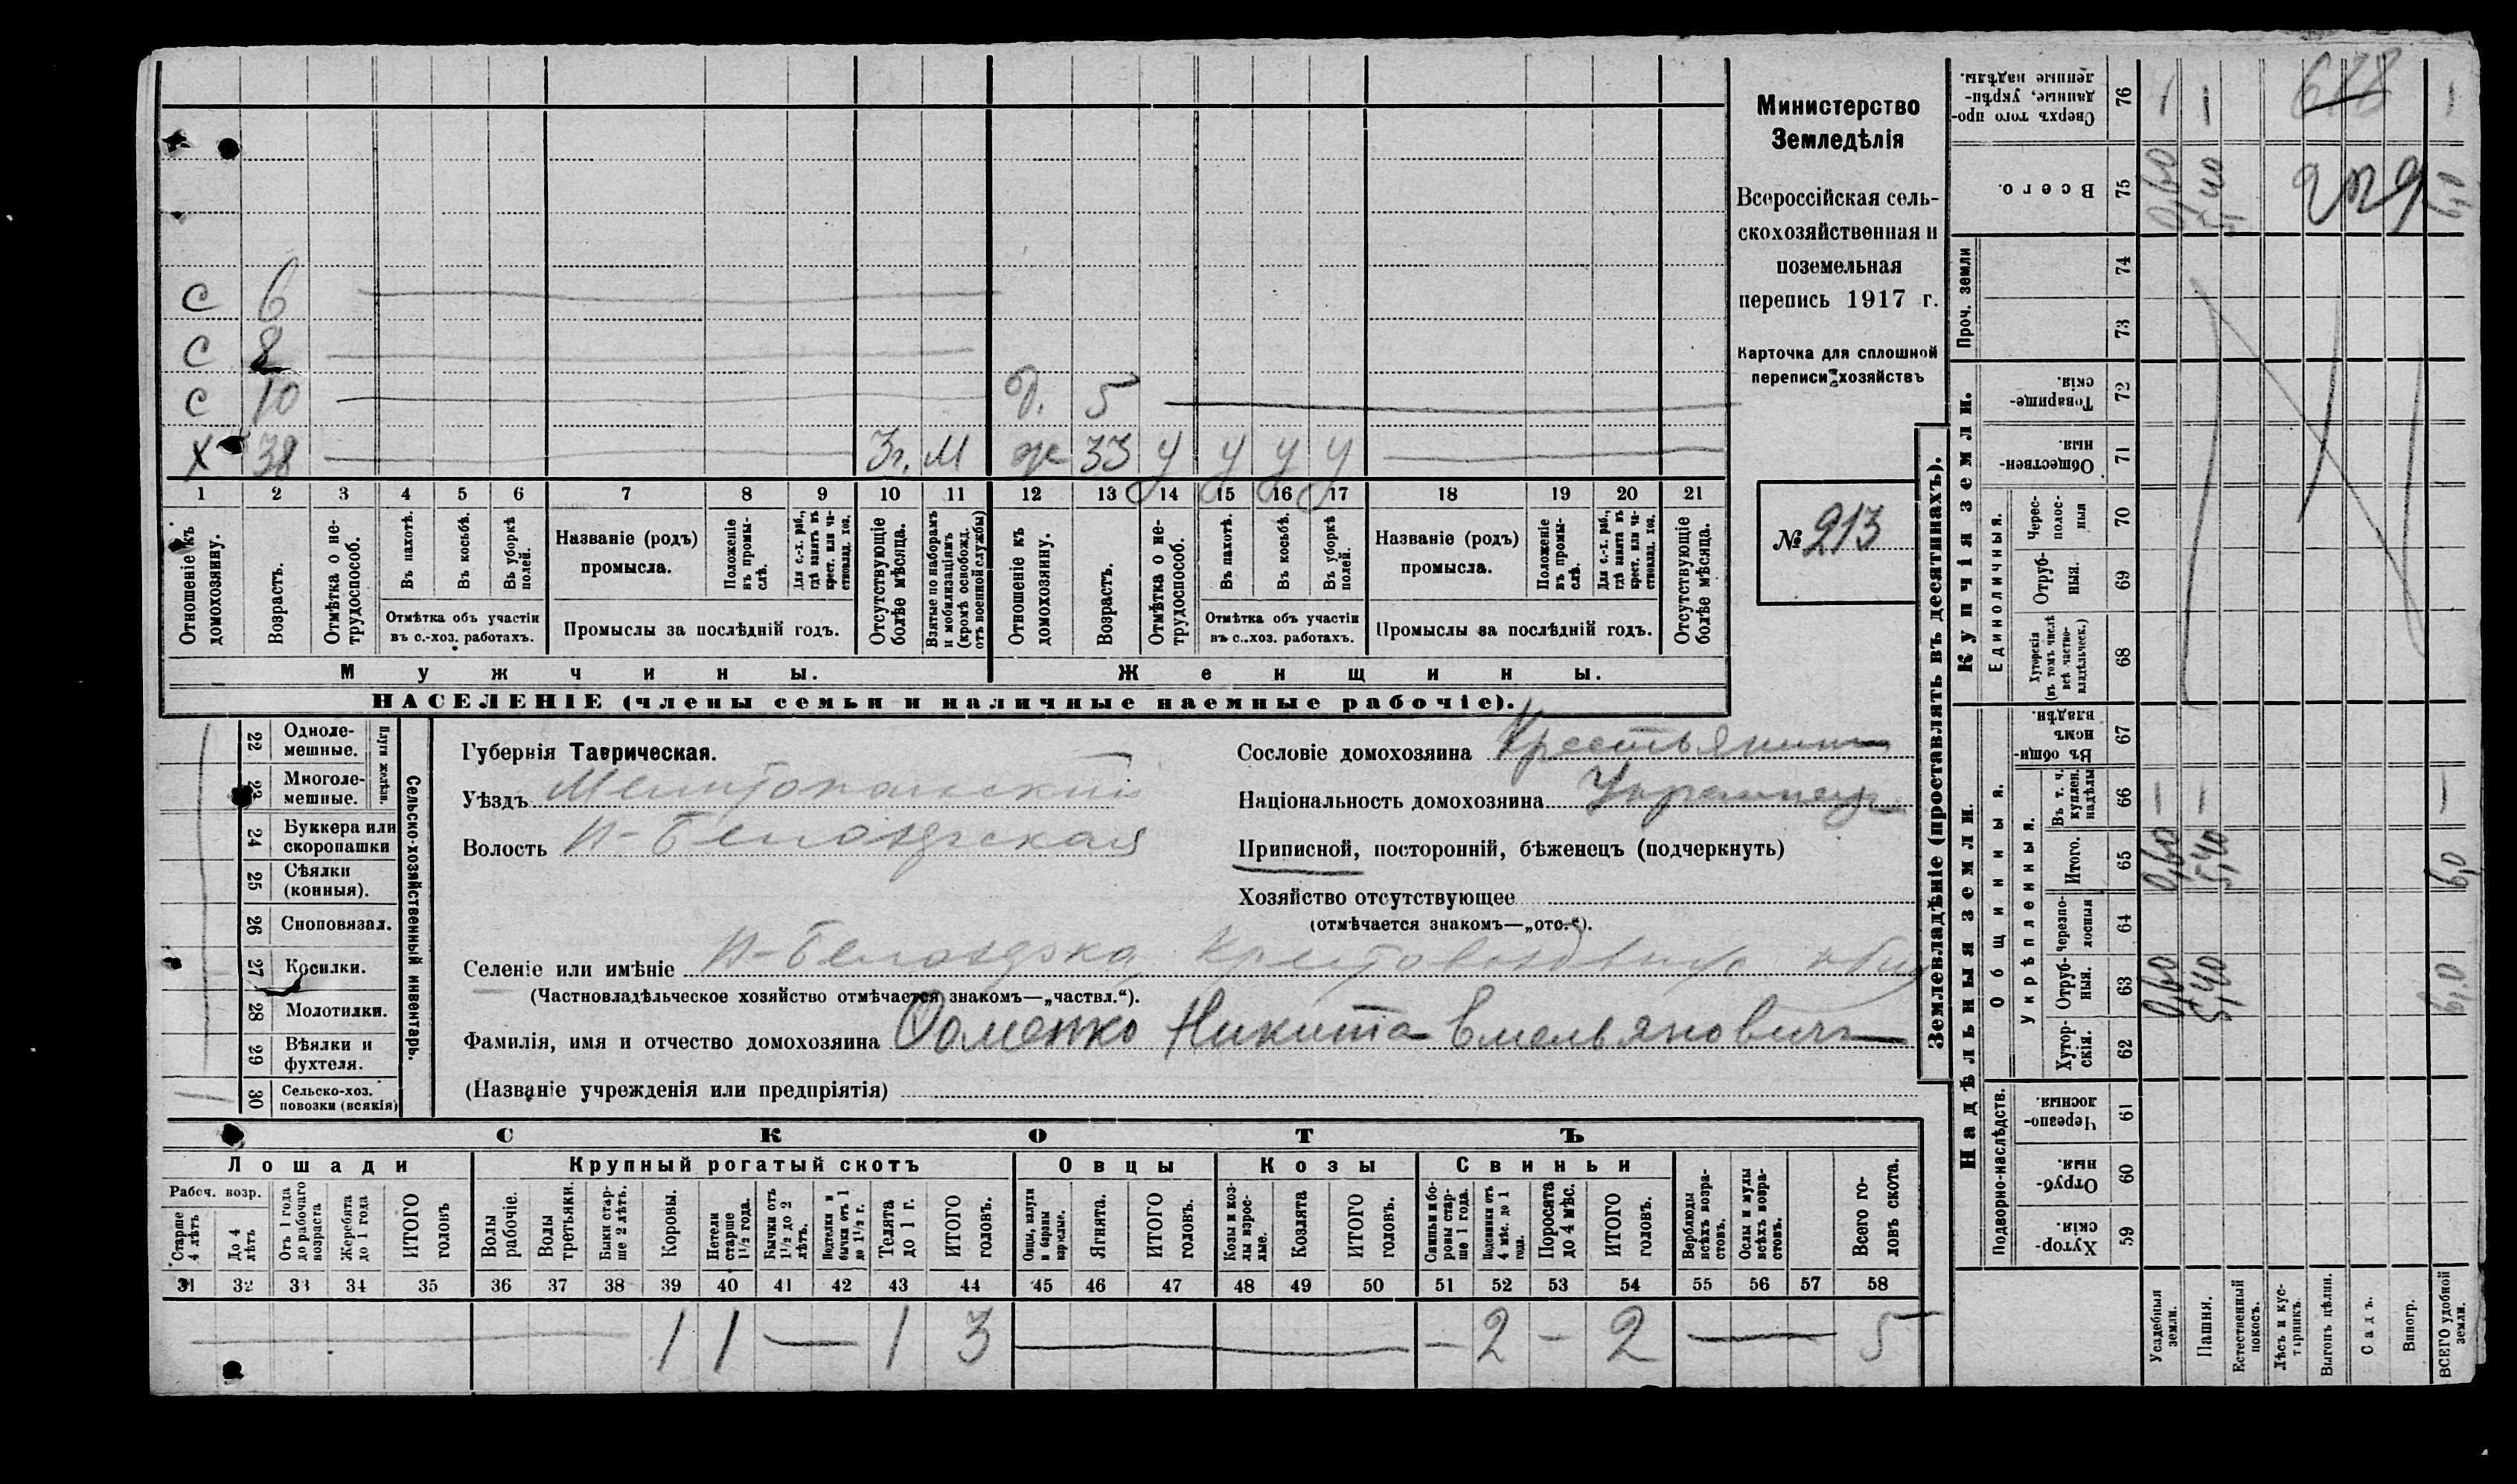 Министерство
Земледѣлія
Всероссійская сель-
скохозяйственная и
поземельная
перепись 1917 г.
Карточка для сплошной
переписи хозяйствъ
№ 213
с 6
с 8
с 10 д. 5
х 38 3г. м ж 33 у у у у
1 2 3 4 5 6 7 8 9 10 11 12 13 14 15 16 17 18 19 20 21
Отношеніе къ домохозяину.
Возрастъ.
Отмѣтка о не-трудоспособ.
Въ пахотѣ.
Въ косьбѣ.
Въ уборкѣ полей.
Отмѣтка объ участіи
въ с.-хоз. работахъ.
Названіе (родъ)
промысла.
Положеніе въ промы-слѣ.
Для с.-х. раб., гдѣ занятъ въ крест. или ча-стновлад. хоз.
Промыслы за послѣдній годъ.
Отсутствующіе болѣе мѣсяца.
Взятые по наборамъ и мобилизаціямъ (кромѣ освобожд. отъ военной службы)
Отношеніе къ домохозяину.
Возрастъ.
Отмѣтка о не-трудоспособ.
Въ пахотѣ.
Въ косьбѣ.
Въ уборкѣ полей.
Отмѣтка объ участіи
въ с.-хоз. работахъ.
Названіе (родъ)
промысла.
Положеніе въ промы-слѣ.
Для с.-х. раб., гдѣ занята въ крест. или ча-стновлад. хоз.
Промыслы за послѣдній годъ.
Отсутствующіе болѣе мѣсяца.
Мужчины. Женщины.
НАСЕЛЕНІЕ (члены семьи и наличные наемные рабочіе).
Сельско-хозяйственный инвентарь.
Плуги желѣзн.
22 Одноле-мешные.
23 Многоле-мешные.
24 Буккера или скоропашки
25 Сѣялки (конныя).
26 Сноповязал.
27 Косилки.
28 Молотилки.
29 Вѣялки и фухтеля.
30 Сельско-хоз. повозки (всякія)
Губернія Таврическая.
Уѣздъ Мелитопольскій
Волость Н-Белозерская
Сословіе домохозяина Крестьянинъ
Національность домохозяина Украинецъ
Приписной, посторонній, бѣженецъ (подчеркнуть)
Хозяйство отсутствующее
(отмѣчается знакомъ—„отс.“).
Селеніе или имѣніе Н-Белозерка,
(Частновладѣльческое хозяйство отмѣчается знакомъ—„частвл.“).
Фамилія, имя и отчество домохозяина Никита Емельяновичъ
(Названіе учрежденія или предпріятія)
СКОТЪ
Лошади Крупный рогатый скотъ Овцы Козы Свиньи
Рабоч. возр.
Старше 4 лѣтъ
До 4 лѣтъ
Отъ 1 года до рабочаго возраста
Жеребята до 1 года
ИТОГО головъ
Волы рабочіе.
Волы третьяки.
Быки стар-ше 2 лѣтъ.
Коровы.
Нетели старше 1½ года.
Бычки отъ 1½ до 2 лѣтъ.
Подтелки и бычки отъ 1 до 1½ г.
Телята до 1 г.
ИТОГО головъ.
Овцы, валухи и бараны взрослые.
Ягнята.
ИТОГО головъ.
Козы и коз-лы взрос-лые.
Козлята
ИТОГО головъ.
Свиньи и бо-ровы стар-ше 1 года.
Подсвинки отъ 4 мѣс. до 1 года.
Поросята до 4 мѣс.
ИТОГО головъ.
Верблюды всѣхъ возра-стовъ.
Ослы и мулы всѣхъ возра-стовъ.
Всего го-ловъ скота.
31 32 33 34 35 36 37 38 39 40 41 42 43 44 45 46 47 48 49 50 51 52 53 54 55 56 57 58
1 1 — 1 3 — 2 — 2 — 5
Землевладѣніе (проставлять въ десятинахъ).
Надѣльныя земли. Купчія земли. Проч. земли
Подворно-наслѣдств.
Общинныя.
Укрѣпленныя.
Единоличныя.
59 Хутор-скія.
60 Отруб-ныя.
61 Черезпо-лосныя.
62 Хутор-скія.
63 Отруб-ныя. 0,60 5,40 6,0
64 Черезпо-лосныя
65 Итого. 0,60 5,40 6,0
66 Въ т. ч. куплен. надѣлы — — —
67 Въ общи-номъ владѣн.
68 Хуторскія (въ томъ числѣ всѣ частно-владѣльческ.)
69 Отруб-ныя.
70 Черес-полос-ныя
71 Обществен-ныя.
72 Товарище-скія.
73
74
75 Всего. 0,60 5,40 6,0
76 Сверхъ того про-данные, укрѣп-ленные надѣлы. — — —
628
Усадебныя земли.
Пашня.
Естественный покосъ.
Лѣсъ и кус-тарникъ.
Выгонъ цѣлин.
Садъ.
Виногр.
ВСЕГО удобной земли.